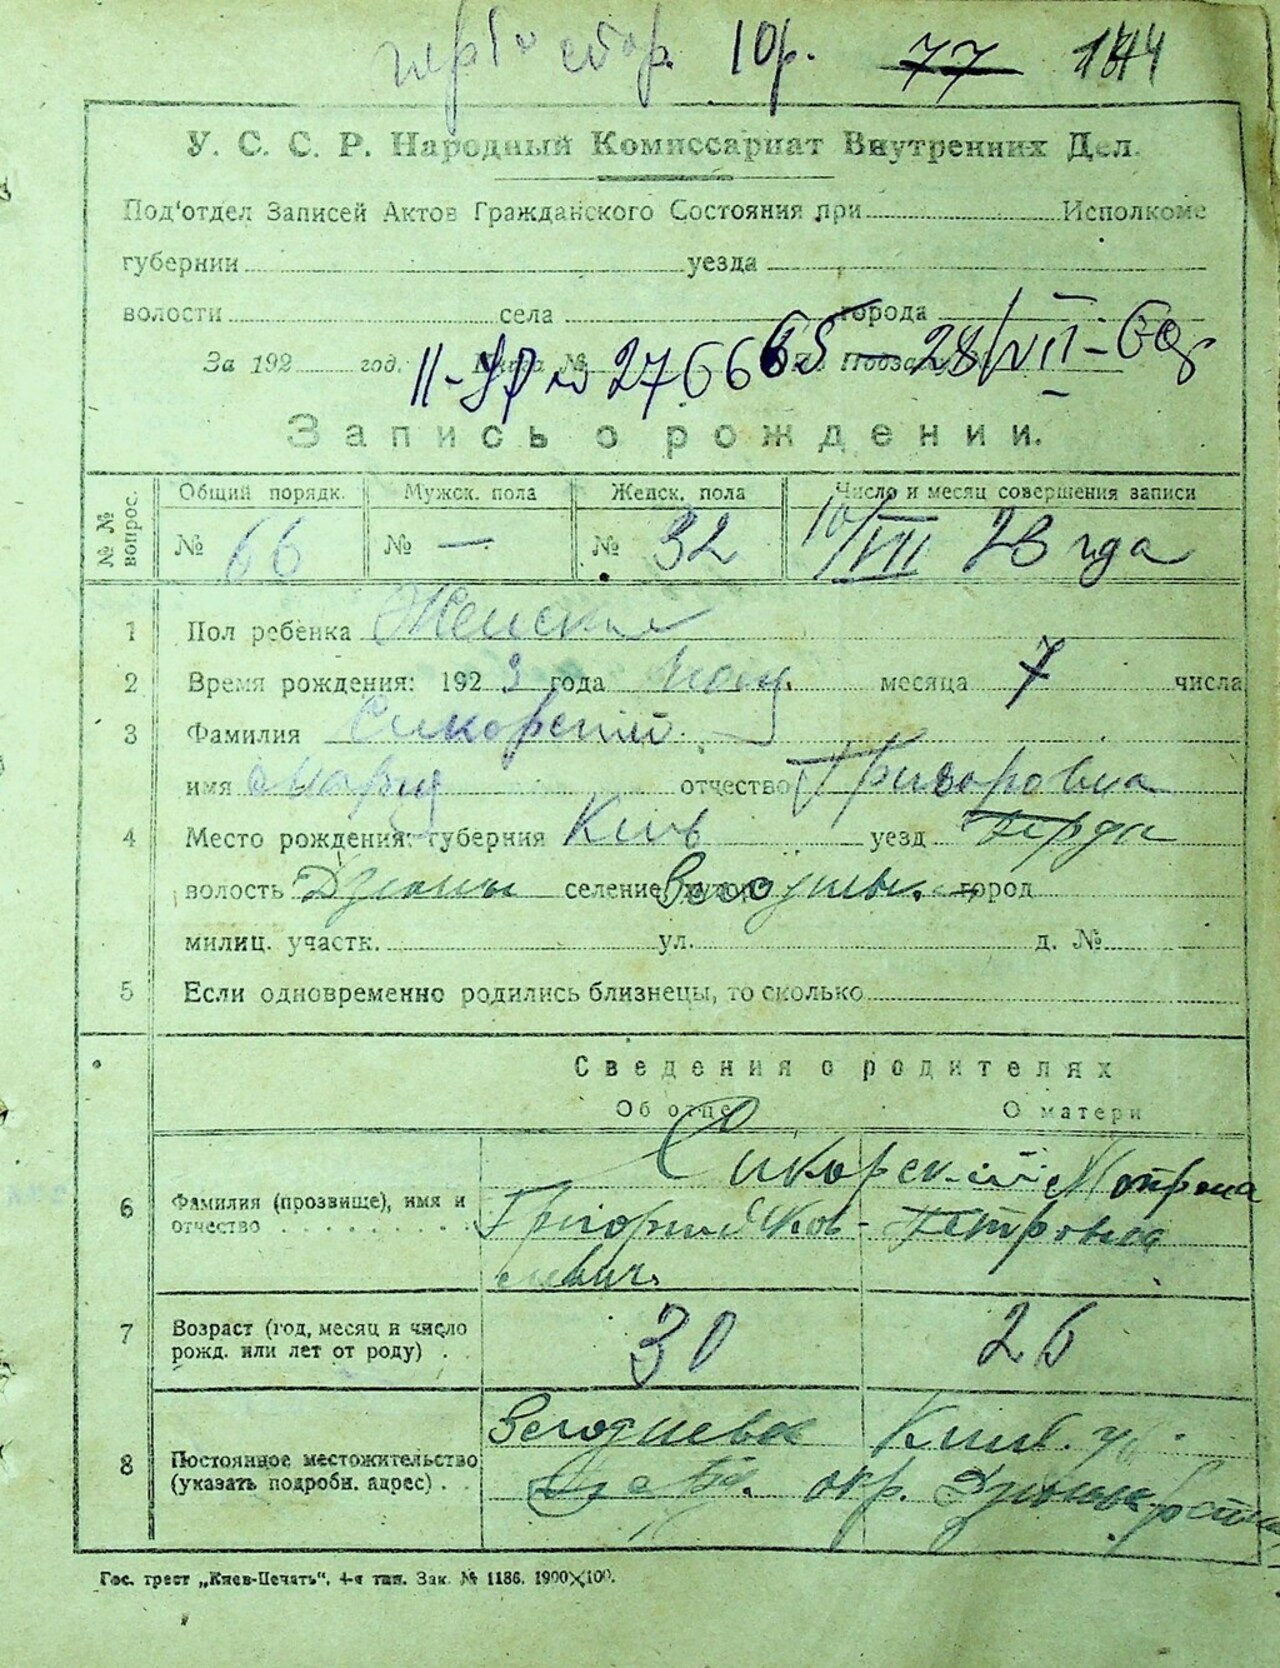 10р. 77 144
У. С. С. Р. Народный Комиссариат Внутренних Дел.
Под'отдел Записей Актов Гражданского Состояния при Исполкоме
губернии уезда
волости села города
За 192 год. Книга №
28/VII-60г
Запись о рождении.
№ № вопрос. Общий порядк. Мужск. пола Женск. пола Число и месяц совершения записи
№ 66 № — № 32 10/VII 23 года
1 Пол ребенка Женский
2 Время рождения: 1923 года месяца 7 числа
3 Фамилия Сикорский
имя Мария отчество Григоровна
4 Место рождения: губерния Київ уезд
волость селение, хутор город
милиц. участк. ул. д. №
5 Если одновременно родились близнецы, то сколько
Сведения о родителях
Об отце О матери
6 Фамилия (прозвище), имя и отчество
Сикорский Мотрона
Григорий Яков- Петровна
левич
7 Возраст (год, месяц и число рожд. или лет от роду) 30 26
8 Постоянное местожительство (указать подробн. адрес)
Київ. губ.
окр.
Гос. трест „Киев-Печать“, 4-я тип. Зак. № 1186. 1900×100.